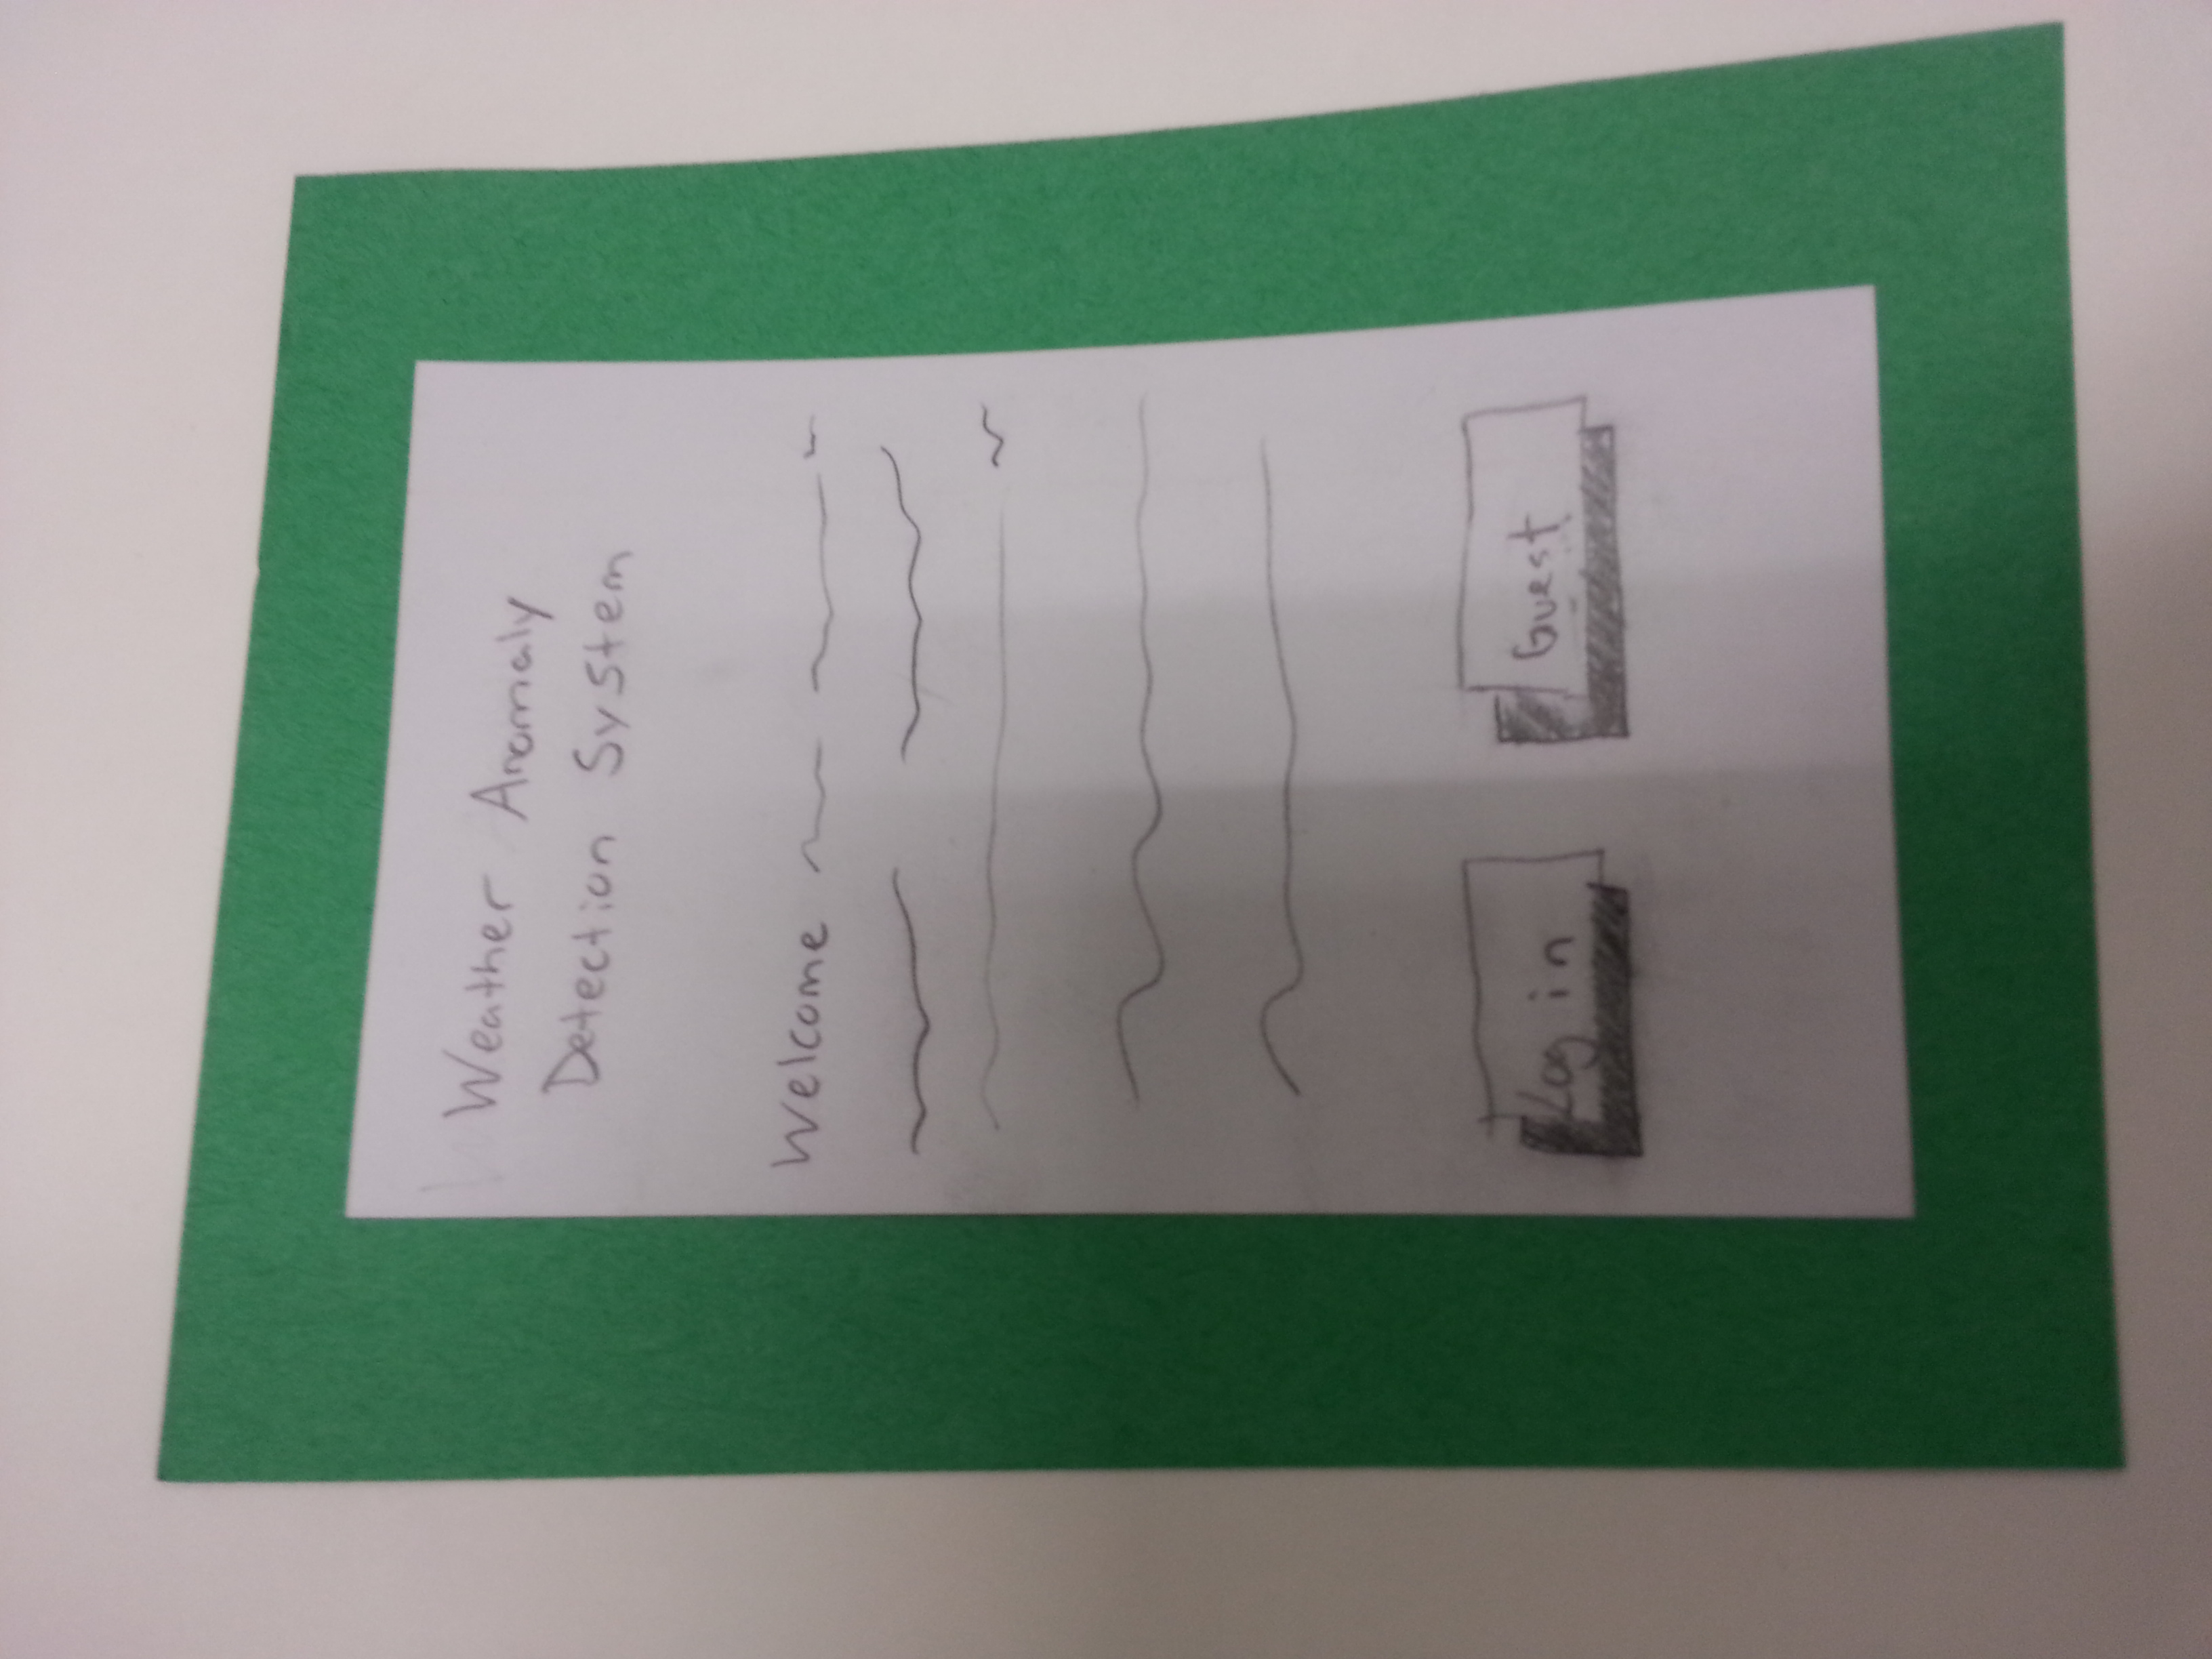 Weather Anomaly
Detection System
Welcome
Log in
Guest